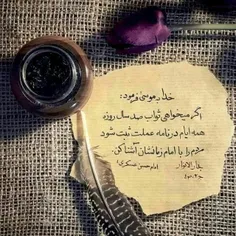 خدا به موسی فرمود:
اگر میخواهی ثواب صد سال روزه
همه ایام در نامه عملت ثبت شود
مردم را با امام زمانشان آشنا کن.
امام حسن عسکری
بحارالانوار
ج۲، ص۴